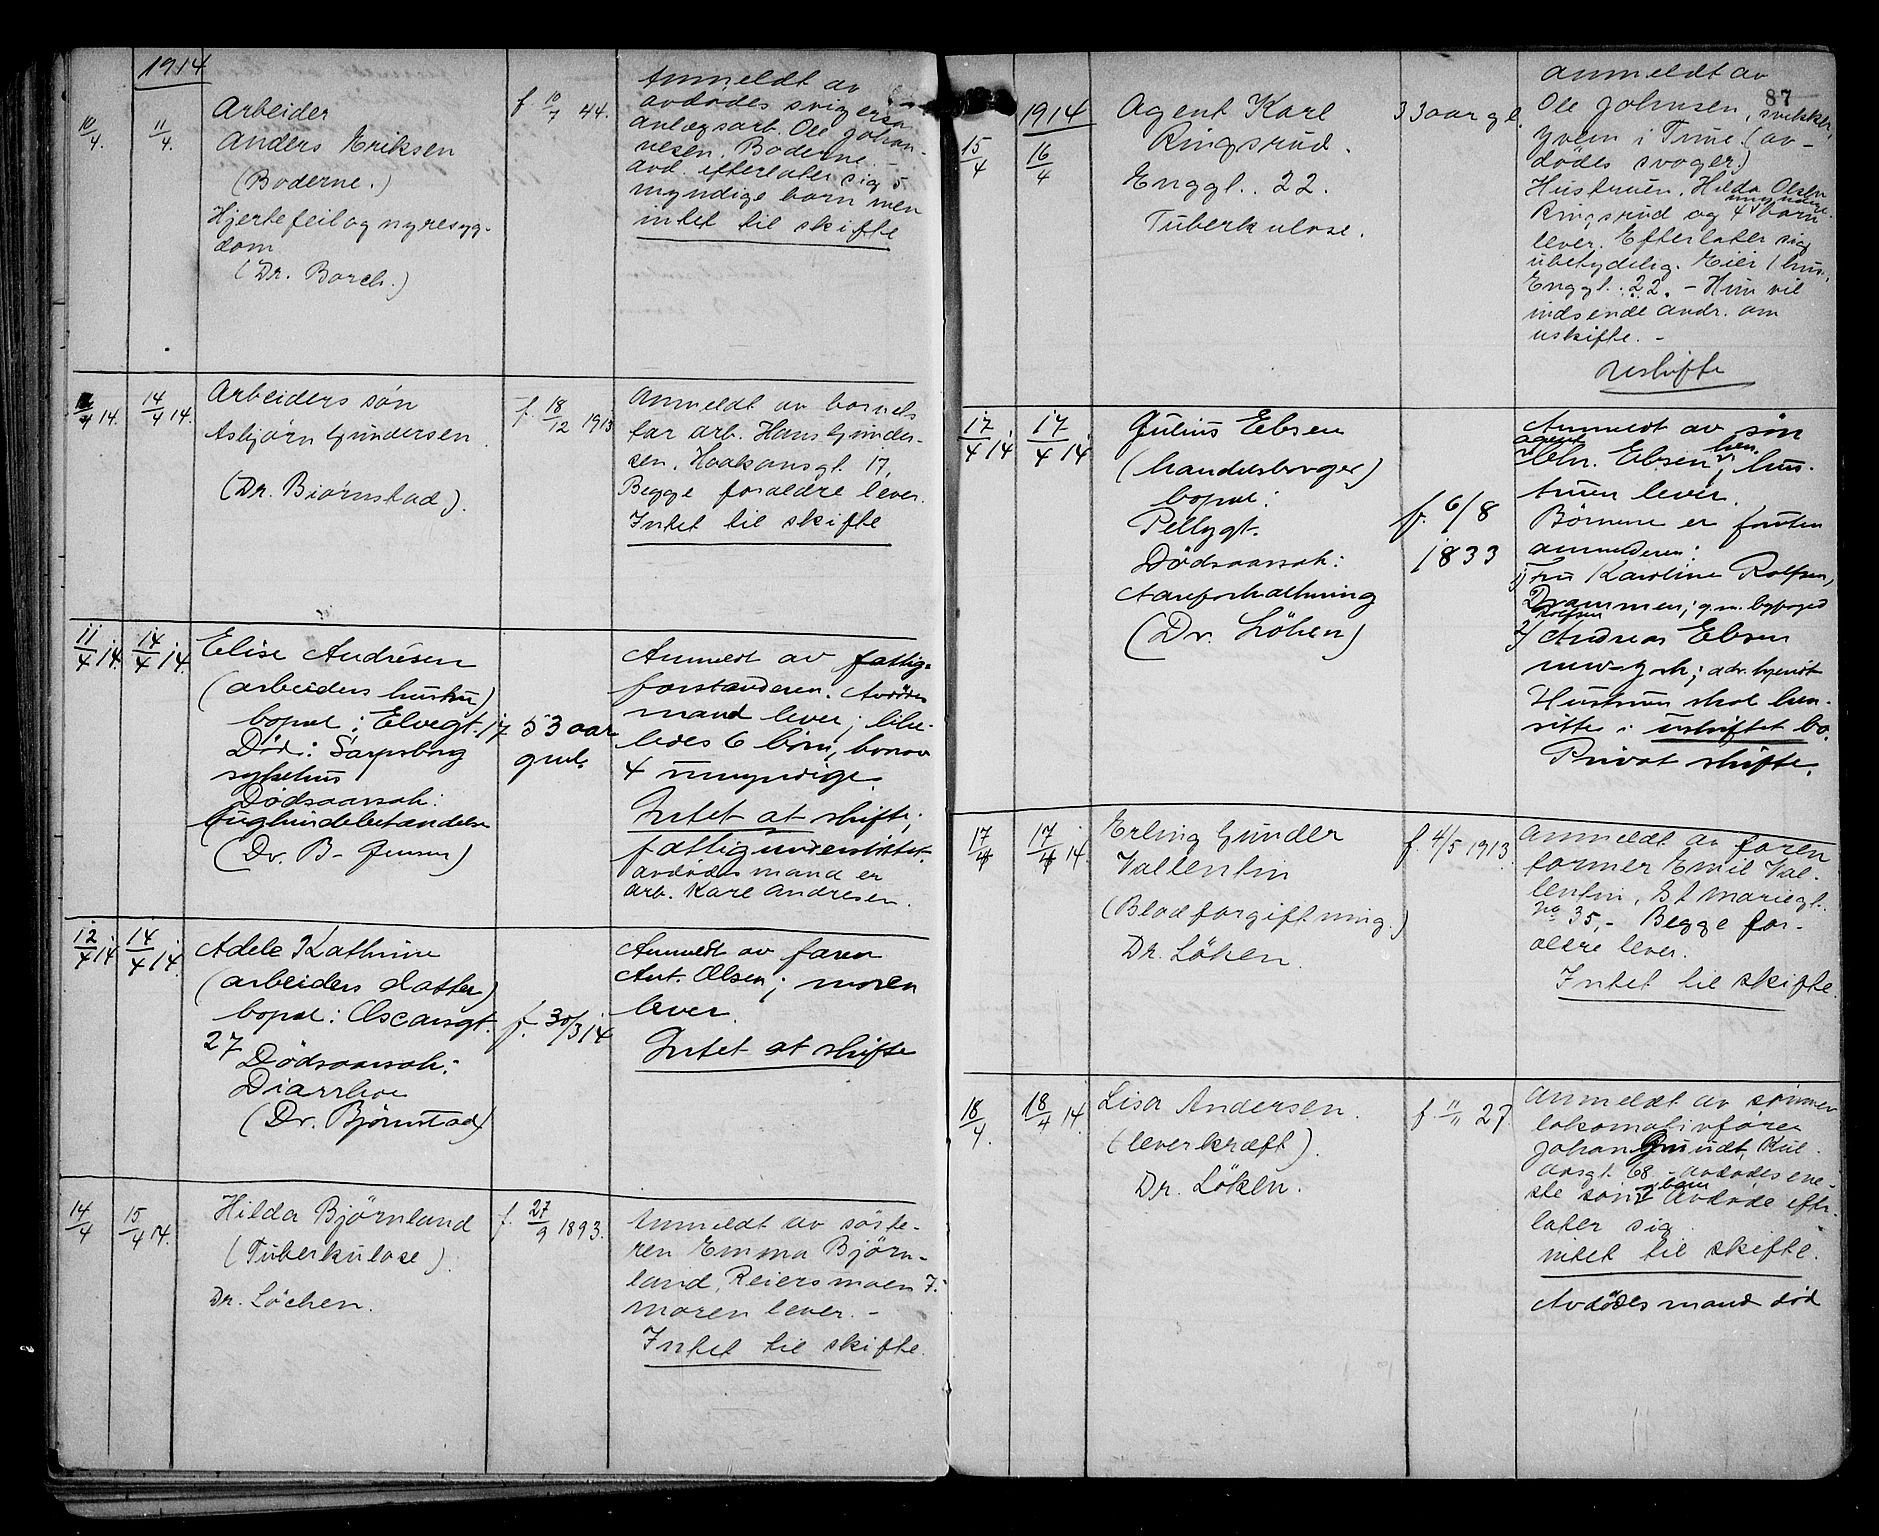 1914
10/4. 11/4. Arbeider
Anders Eriksen
(Boderne.)
Hjertefeil og nyresyg-
dom
(Dr. Borch.)
f 10/7 44.
Anmeldt av
avdødes svigersøn
anlægsarb. Ole Johan-
nesen, Boderne. -
avd. efterlater sig 5
myndige barn men
intet til skifte
/4 14. 14/4 14. Arbeiders søn
Asbjørn Gundersen
(Dr. Bjørnstad).
f. 18/12 1913
Anmeldt av barnets
far arb. Hans Gunder-
sen, Haakonsgt. 17,
Begge forældre lever.
Intet til skifte
11/4 14. 14/4 14. Elise Andrésen
(arbeiders hustru)
bopæl: Elvegt. 17
Død: Sarpsborg
sykehus
Dödsaarsak:
bughindebetændelse
(Dr. B- Jensen)
53 aar
gml.
Anmeldt av fattig-
forstanderen. Avdødes
mand lever; like-
ledes 6 børn, hvorav
4 umyndige.
Intet at skifte;
fattigunderstøttet.
avdødes mand er
arb. Karl Andresen.
12/4 14 14/4 14. Adele Kathrine
(arbeiders datter)
bopæl: Oscarsgt.
27
Dödsaarsak:
Diarrhoe
(Dr. Bjørnstad)
f. 30/3 14
Anmeldt av faren
Ant. Olsen; moren
lever.
Intet at skifte
14/4 15/4 14. Hilda Bjørnland
(Tuberkulose).
Dr. Löchen.
f. 27/9 1893.
Anmeldt av søste-
ren Emma Bjørn-
land, Reiersmoen 7.
moren lever. -
Intet til skifte.
87
1914
15/4 16/4 Agent Karl
Ringsrud.
Enggt. 22.
Tuberkulose.
33 aar gl.
anmeldt av
Ole Johnsen, snekker,
i Tune (av-
dødes svoger)
Hustruen, Hilda Olsen
umyndige
Ringsrud og 4 barn
lever. Efterlater sig
ubetydelig. Eier 1 hus,
Enggt. 22. - Hun vil
indsende andr. om
uskifte. -
Uskifte
17/4 14 17/4 14 Julius Ebsen
(handelsborger)
bopæl:
Pellygt.
Dödsaarsak:
Aareforkalkning
(Dr. Löken)
f. 6/8
1833
Anmeldt av søn
agent
Chr. Ebsen, her; hus-
truen lever.
Börnene er foruten
anmelderen:
1) Fru Karoline Rolfsen,
Drammen; g.m. byfoged
Rolfsen
2) Andreas Ebsen
new-york; adr. bekjendt
Hustruen skal hen-
sitte i uskiftet bo.
Privat skifte.
17/4 17/4 14 Erling Gunder
Vallentin
(Blodforgiftning.)
Dr. Löken.
f. 4/5 1913.
Anmeldt av faren
former Emil Val-
lentin, St mariegt.
no 35, - Begge for-
ældre lever.
Intet til skifte.
18/4. 18/4 14. Lisa Andersen.
(leverkræft).
Dr. Löken.
f 11/11 27.
Anmeldt av sönnen
lokomotivfører
Johan Grundt, Kul
aasgt. 68 - avdødes ene-
ste søn Avdøde efter-
later sig
intet til skifte.
Avdødes mand død